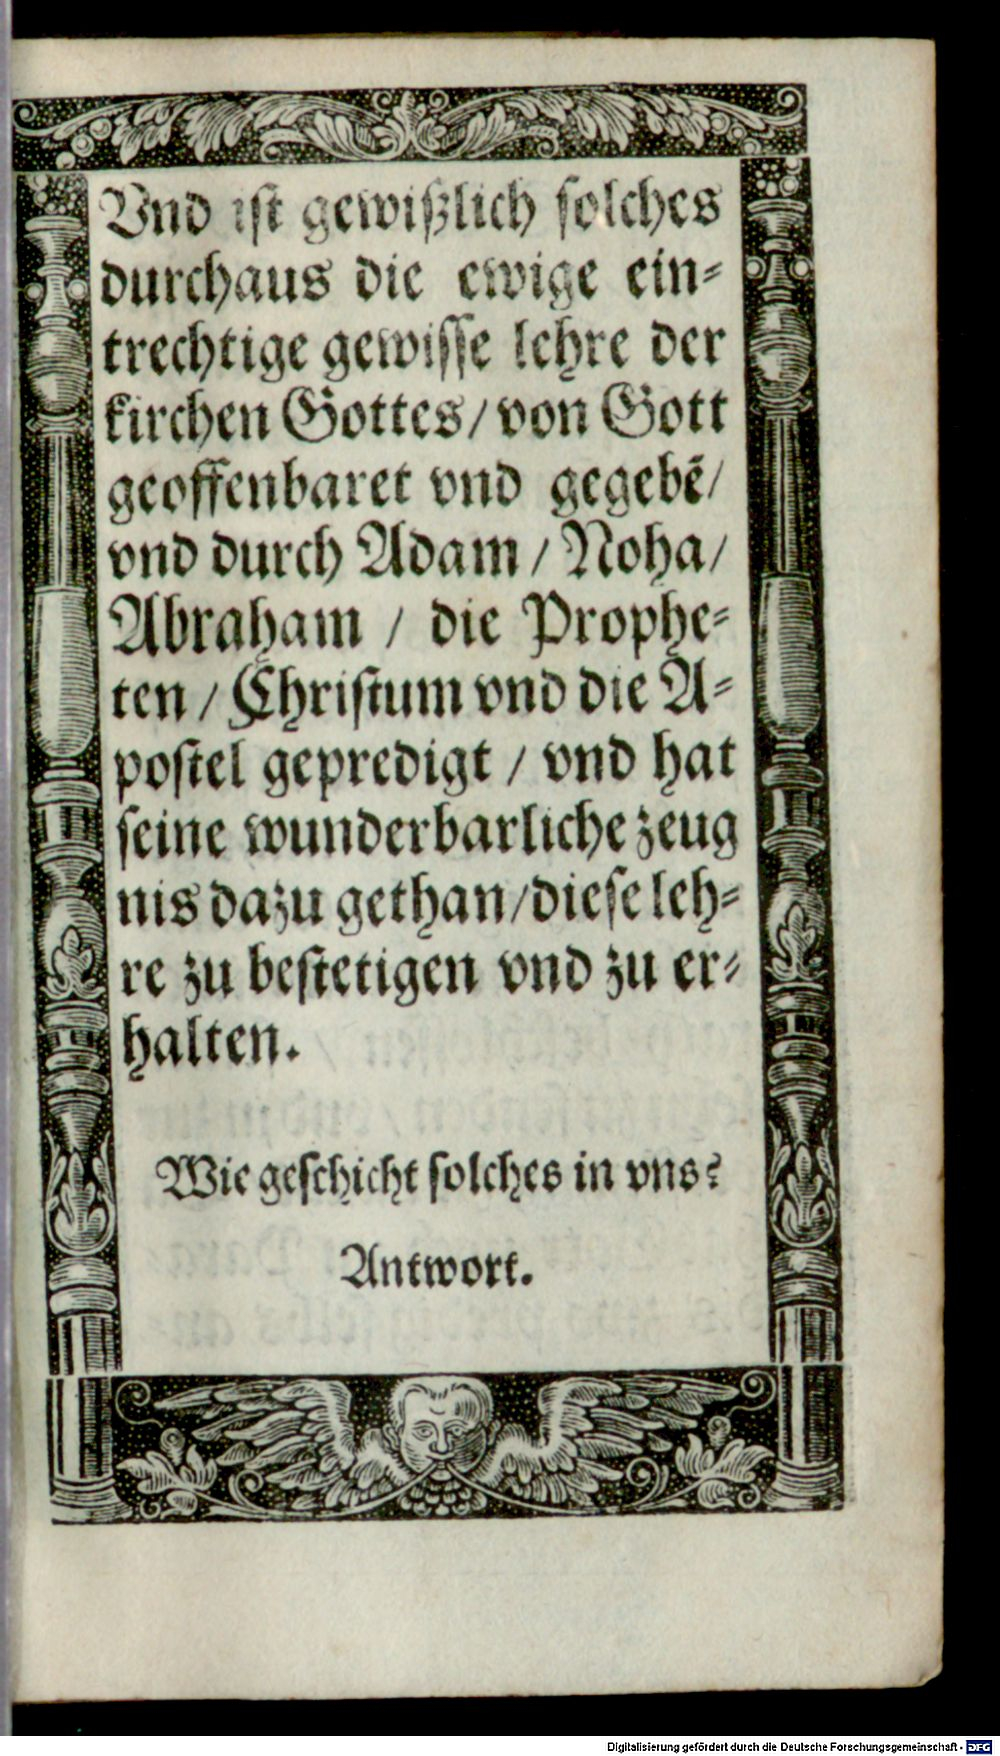 Vnd ist gewißlich solches
durchaus die ewige ein⸗
trechtige gewisse lehre der
kirchen Gottes/ von Gott
geoffenbaret vnd gegebē/
vnd durch Adam / Noha/
Abraham / die Prophe⸗
ten / Christum vnd die A⸗
postel gepredigt / vnd hat
seine wunderbarliche zeug
nis dazu gethan/diese leh⸗
re zu bestetigen vnd zu er⸗
halten.
Wie geschicht solches in vns?
Antwort.
Digitalisierung gefördert durch die Deutsche Forschungsgemeinschaft - DFG